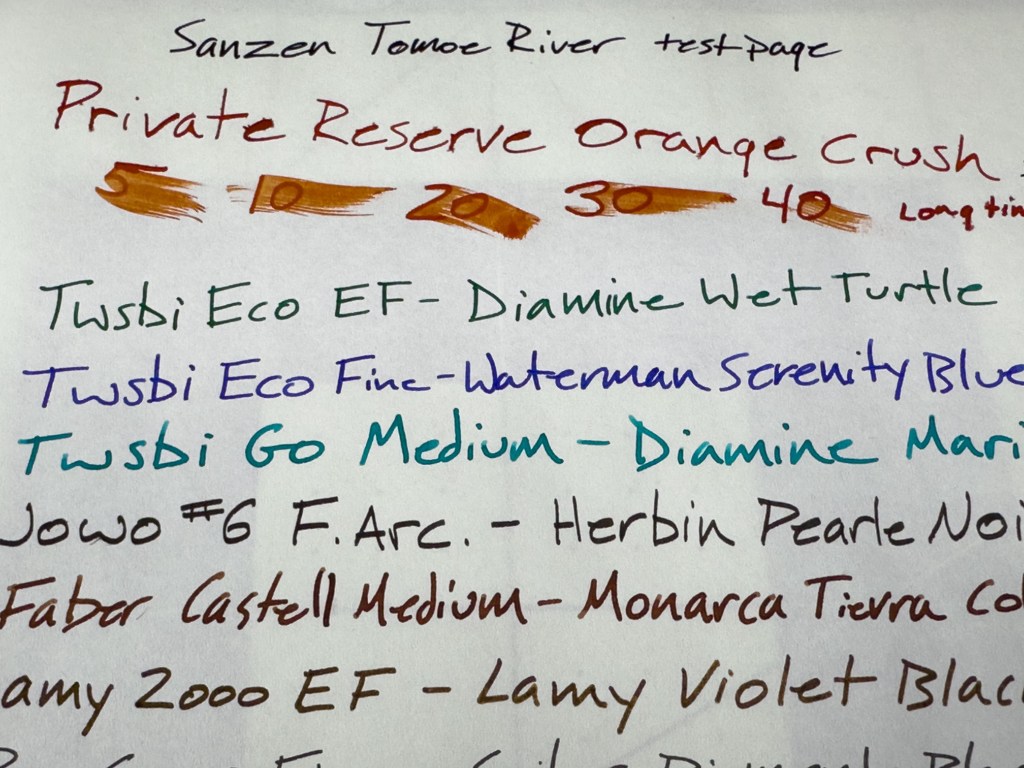 Sanzen Tomoe River test page
Private Reserve Orange Crush
5 10 20 30 40 Long tim
Twsbi Eco EF - Diamine Wet Turtle
Twsbi Eco Fine - Waterman Serenity Blue
Twsbi Go Medium - Diamine Mari
Jowo #6 F. Arc. - Herbin Pearle Noi
Faber Castell Medium - Monarca Tierra Co
amy 2000 EF - Lamy Violet Blac